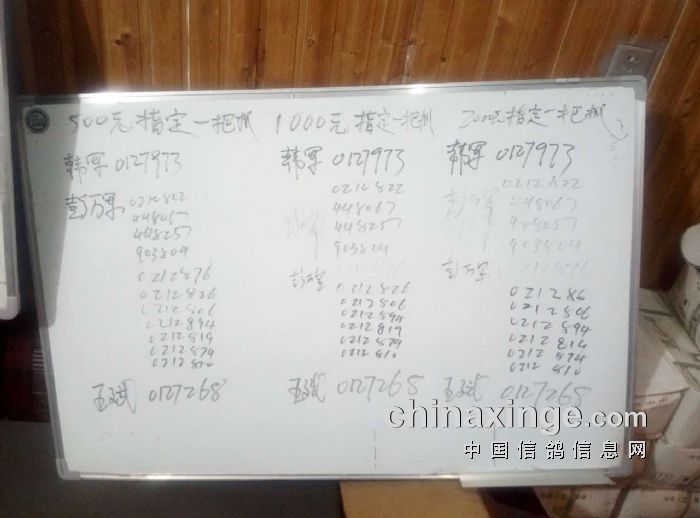 500元指定一把抓
韩军 0127973
彭万军 0212822
448067
448257
903804
0212876
0212826
0212806
0212894
0212819
0212874
0212810
王斌 0127268
1000元指定一把抓
韩军 0127973
0212822
448067
448257
903804
彭万军
0212826
0212806
0212894
0212819
0212874
0212810
王斌 0127268
2000元指定一把抓
韩军 0127973
0212822
448067
448257
903804
彭万军 0212876
021286
0212806
0212894
0212814
0212874
0212810
王斌 0127268
chinaxinge.com
中国信鸽信息网